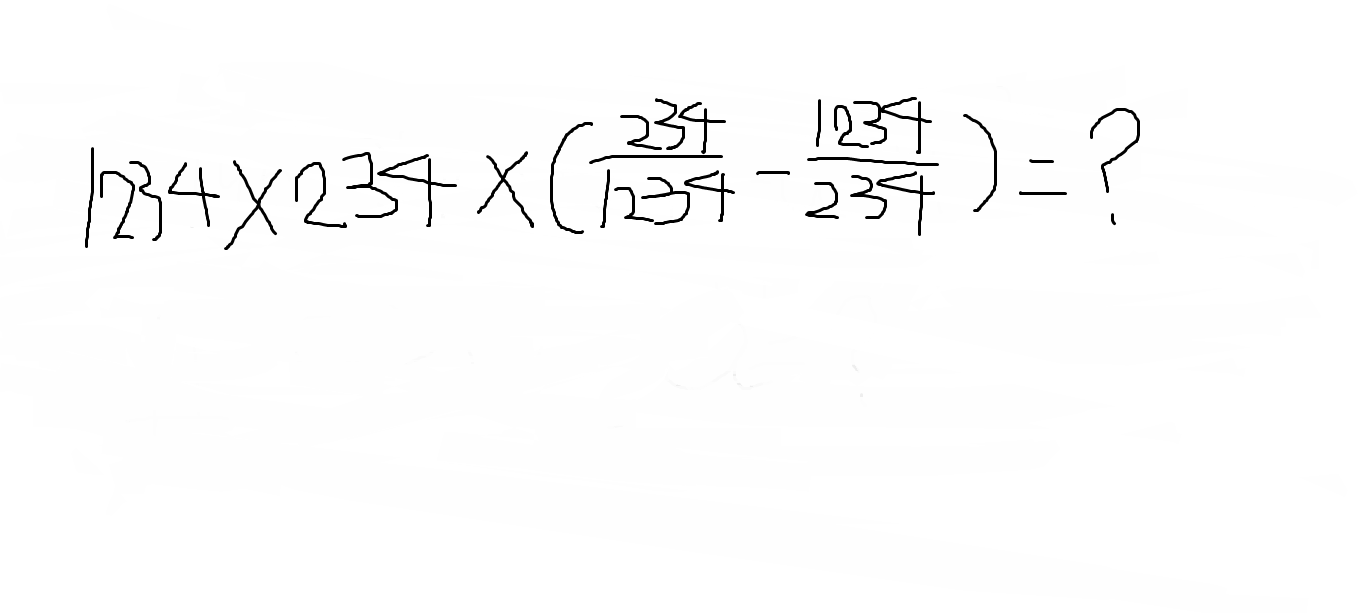 1234×234×(234/1234-1234/234)=?